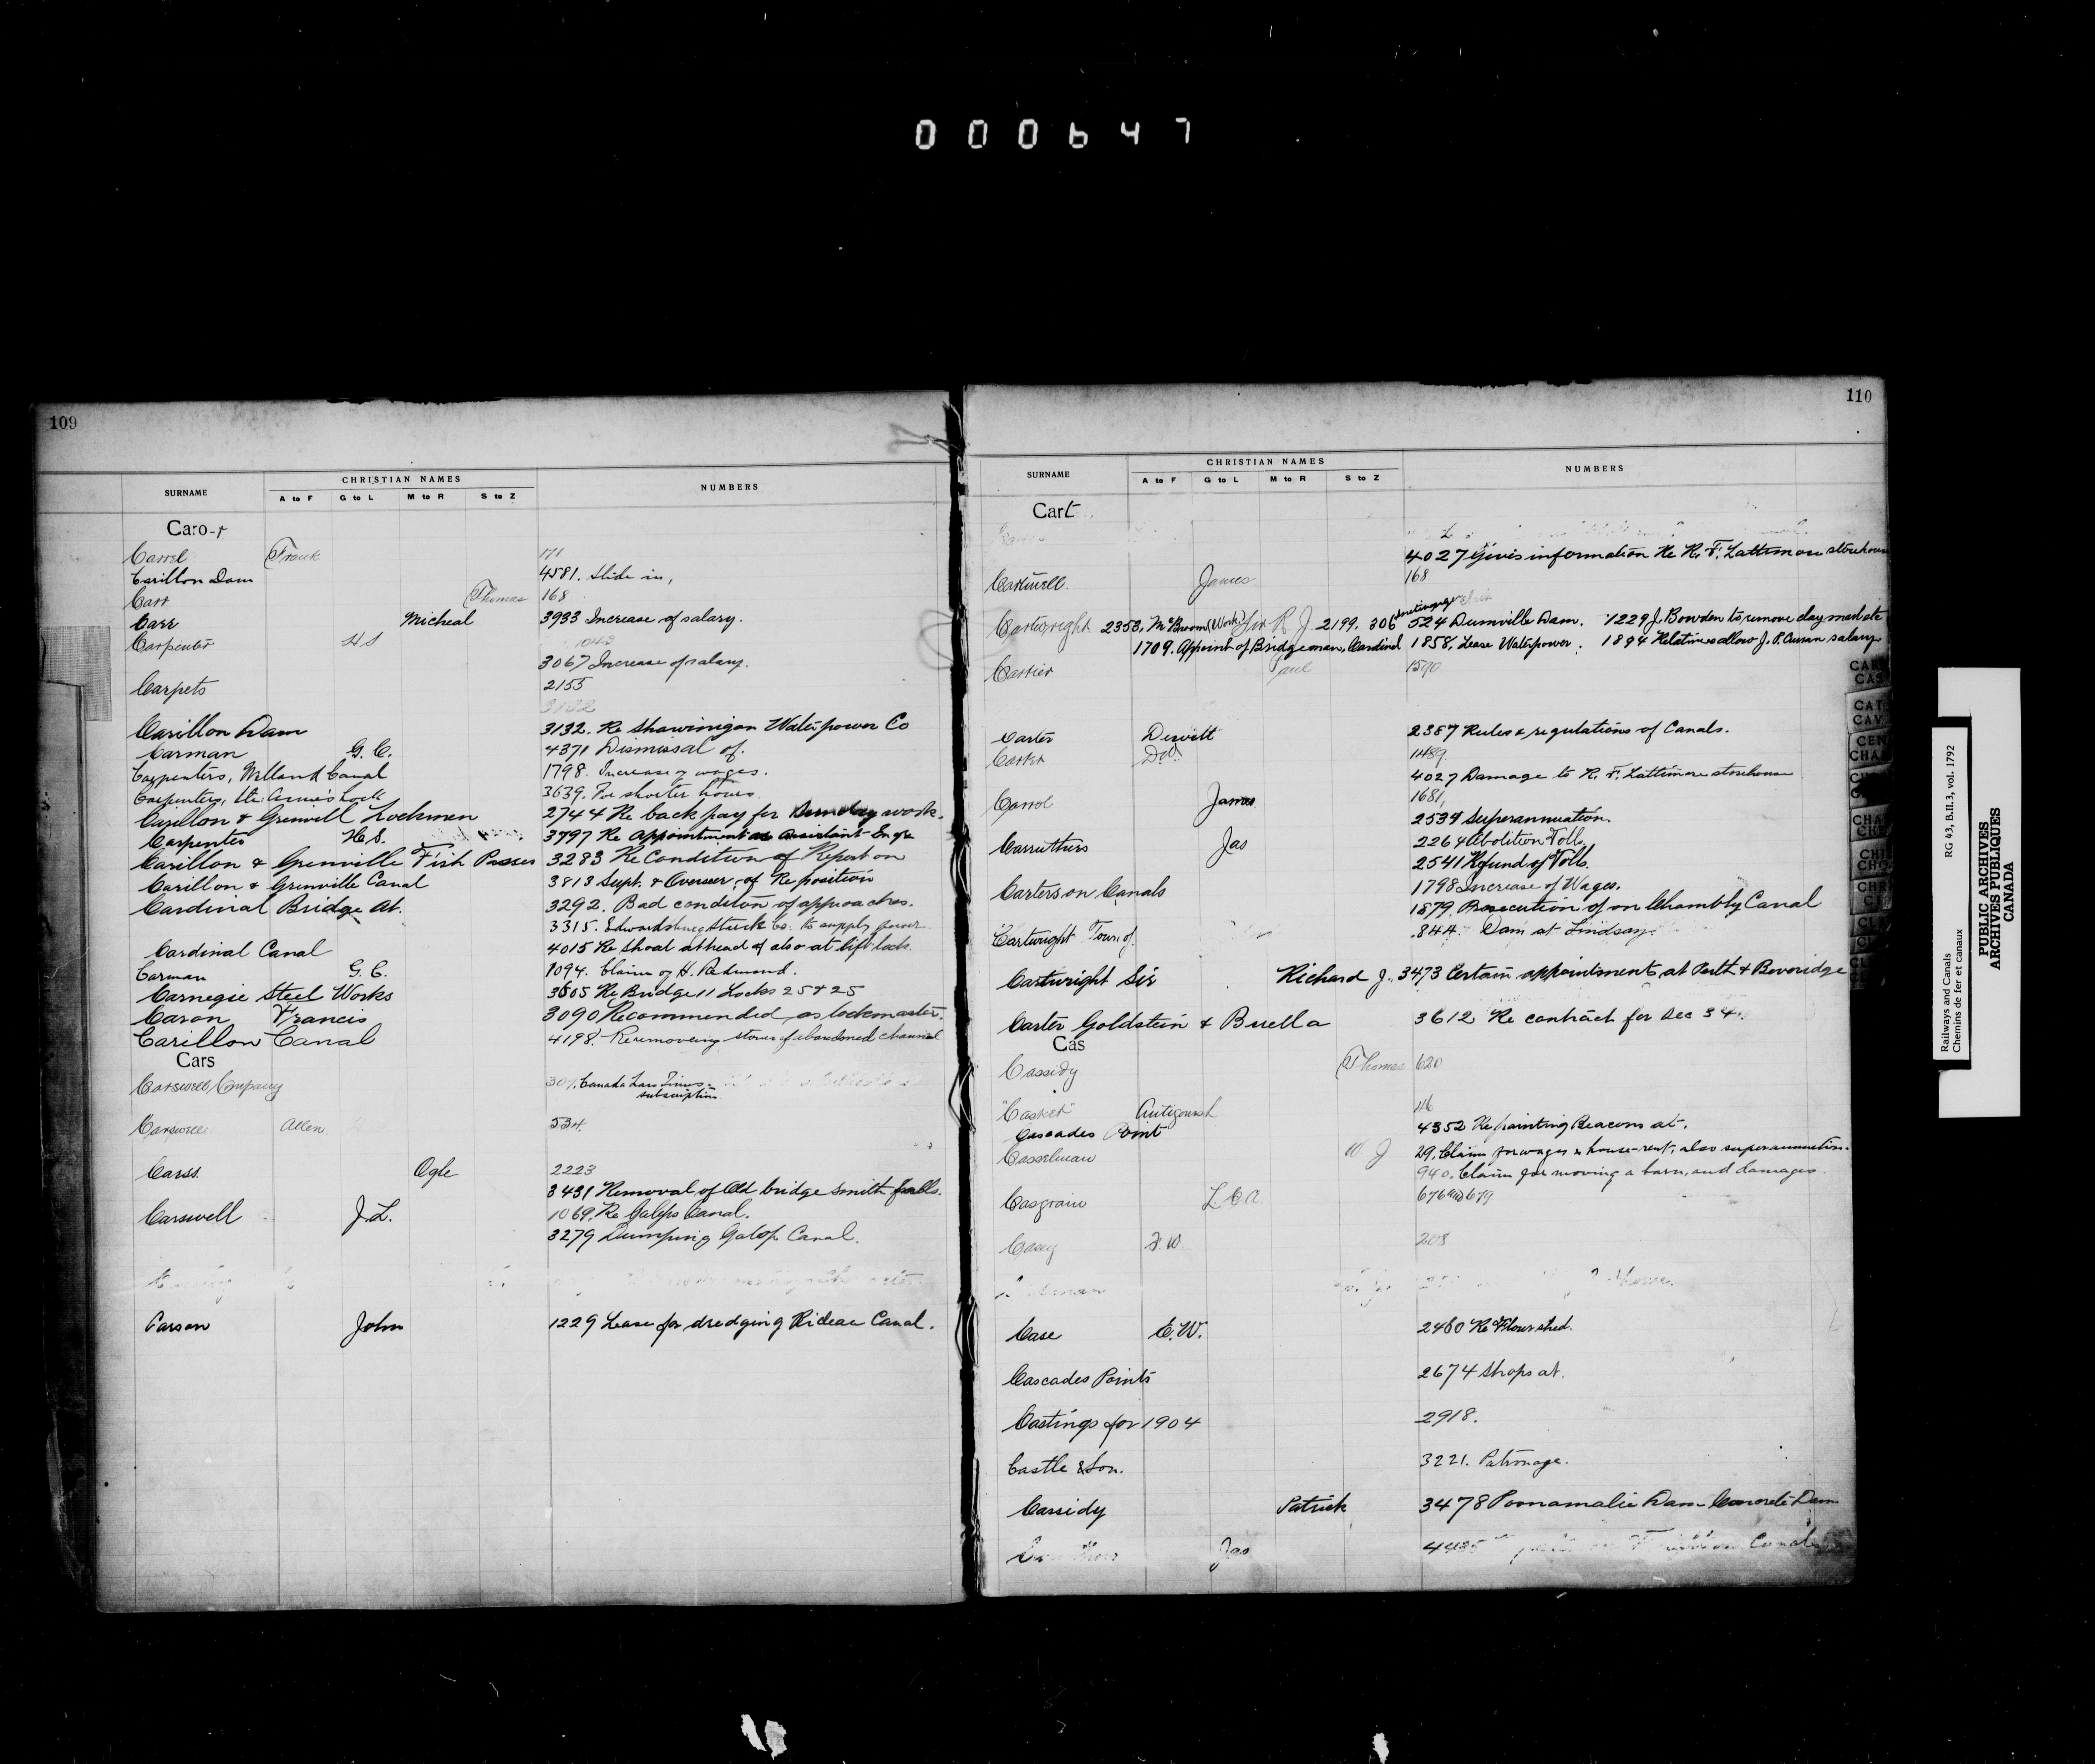 000647
109
SURNAME CHRISTIAN NAMES NUMBERS
A to F G to L M to R S to Z
Caro-r
Carrel Frank 171
Carillon Dam 4581. Slide in,
Carr Thomas 168
Carr Micheal 3933 Increase of salary.
Carpenter H S 1042
3067 Increase of salary.
Carpets 2155
Carillon Dam 3132. Re Shawinigan Waterpower Co
Carman G. C. 4371 Dismissal of.
Carpenters, Welland Canal 1798. Increase of wages.
Carpenters, Ste. Annes Lock 3639. For shorter hours
Carillon & Grenvill Lockmen 2744 Re back pay for Sunday work.
Carpenter H.S. 3797 Re Appointment as Assistant Engr
Carillon & Grenville Fish Passes 3283 Re Condition of Report on
Carillon & Grenville Canal 3813 Supt. & Overseer, of Re position
Cardinal Bridge at. 3292. Bad condition of approaches.
3315. Edwardsburg Starch Co. to supply power
Cardinal Canal 4015 Re Shoal at head of also at lift lock
Carman G. C. 1094. Claim of H. Redmond.
Carnegie Steel Works 3605 Re Bridge 11 Locks 25 & 25
Caron Francis 3090 Recommended as lockmaster.
Carillon Canal 4198. Re removing stones of abandoned channel
Cars
Carswell Company 307. Canada Law Times
subscription
Carswell Allen 534.
Carss. Ogle 2223
3431 Removal of Old bridge Smith Falls.
Carswell J.L. 1069. Re Galops Canal.
3279 Dumping Galop Canal.
Carson John 1229 Lease for dredging Rideau Canal.
110
SURNAME CHRISTIAN NAMES NUMBERS
A to F G to L M to R S to Z
Cart
4027 Gives information Re R. F. Lattimore storehouse
Cartwell. James 168
Cartwright 2353, McBroom (Work) Sir R J. 2199. 306 524 Dunnville Dam. 1229 J. Bowden to remove clay
1709. Appoint of Bridgeman, Cardinal 1858, Lease Waterpower. 1894 Relative allow J. P. Curran salary
Cartier Paul 1590
Carter Dewitt 2387 Rules & regulations of Canals.
Carter Do. 1489
4027 Damage to R. F. Lattimore storehouse
Carrol James 1681,
2534 Superannuation.
Carruthers Jas 2264 Abolition Tolls
2541 Refund of Tolls.
Carters on Canals 1798 Increase of Wages.
1879. Prosecution of on Chambly Canal
Cartwright Town of. 844. Dam at Lindsay.
Cartwright Sir Richard J. 3473 Certain appointments at Perth & Beveridge
Carter Goldstein & Brella 3612 Re contract for Sec 3 & 4.
Cas
Cassidy Thomas 620
"Casket" Antigonish 46
Cascades Point 4352 Re painting Beacons at.
Casselman W J 29. Claim for wages & house-rent, also superannuation.
940. Claim for moving a barn, and damages.
Casgrain L. C A 676 and 679
Casey F. W 208
Case E.W. 2460 Re Flour shed.
Cascades Points 2674 Shops at.
Castings for 1904 2918.
Castle & Son. 3221. Patronage.
Cassidy Patrick 3478 Poonamalie Dam - Concrete Dam
Jas 4435 Canal
CEN
CHA
CHR
RG 43, B.II.3, vol. 1792
Railways and Canals
Chemins de fer et canaux
PUBLIC ARCHIVES
ARCHIVES PUBLIQUES
CANADA